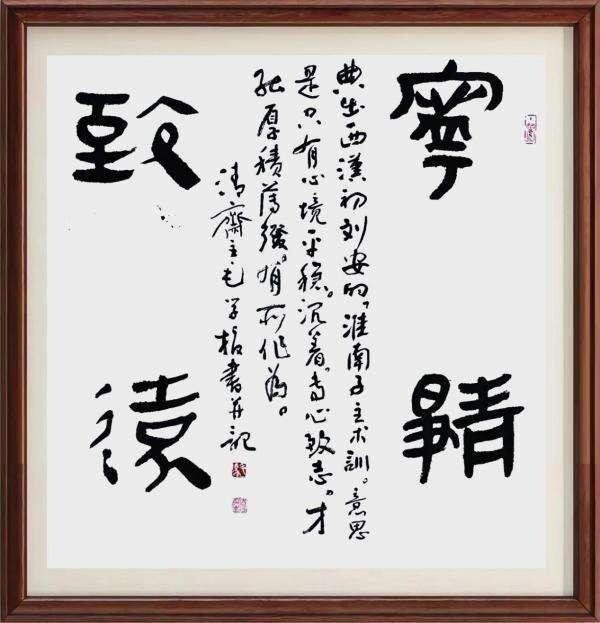 寧靜
致遠
典出西漢初刘安的「淮南子主术訓。意思
是只有心境平穩。沉着。专心致志。才
能厚積薄發。有所作為。
清齋主毛学指書并記